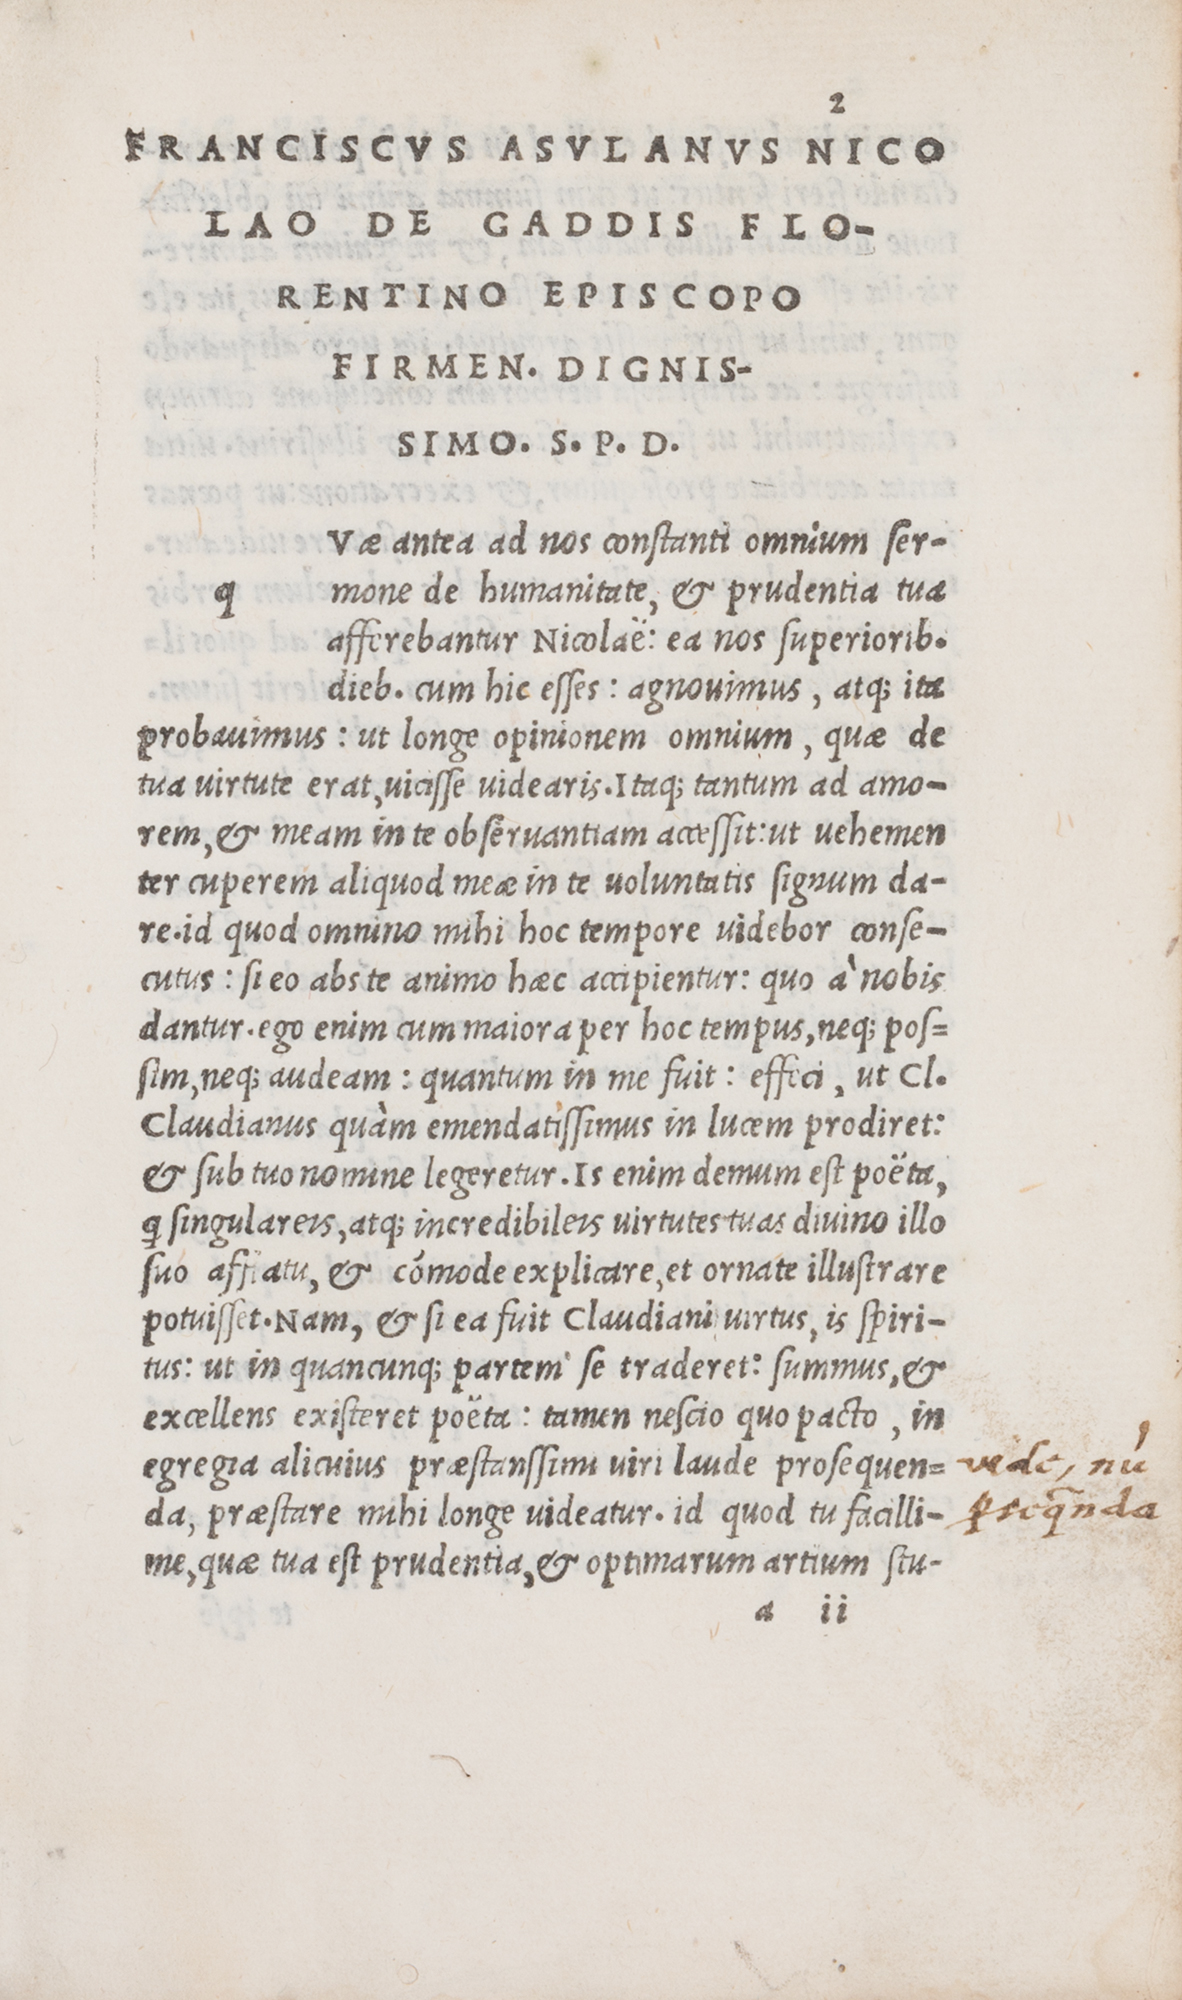 2
FRANCISCVS ASVLANVS NICO
LAO DE GADDIS FLO-
RENTINO EPISCOPO
FIRMEN. DIGNIS-
SIMO. S. P. D.
Væ antea ad nos constanti omnium ser-
q mone de humanitate, & prudentia tua
afferebantur Nicolaë: ea nos superiorib.
dieb. cum hic esses : agnouimus , atq; ita
probauimus : ut longe opinionem omnium , quæ de
tua uirtute erat, uicisse uidearis. Itaq; tantum ad amo-
rem, & meam in te obseruantiam accessit: ut uehemen
ter cuperem aliquod meæ in te uoluntatis signum da-
re. id quod omnino mihi hoc tempore uidebor conse-
cutus : si eo abs te animo hæc accipientur: quo à nobis
dantur. ego enim cum maiora per hoc tempus, neq; pos=
sim, neq; audeam : quantum in me fuit : effeci , ut Cl.
Claudianus quàm emendatissimus in lucem prodiret:
& sub tuo nomine legeretur. Is enim demum est poëta,
ꝗ singulareis, atq; incredibileis uirtutes tuas diuino illo
suo afflatu, & cōmode explicare, et ornate illustrare
potuisset. Nam, & si ea fuit Claudiani uirtus, is spiri-
tus: ut in quancunq; partem se traderet: summus, &
excellens existeret poëta : tamen nescio quo pacto , in
egregia alicuius præstanssimi uiri laude prosequen=
da, præstare mihi longe uideatur. id quod tu facilli-
me, quæ tua est prudentia, & optimarum artium stu-
a ii